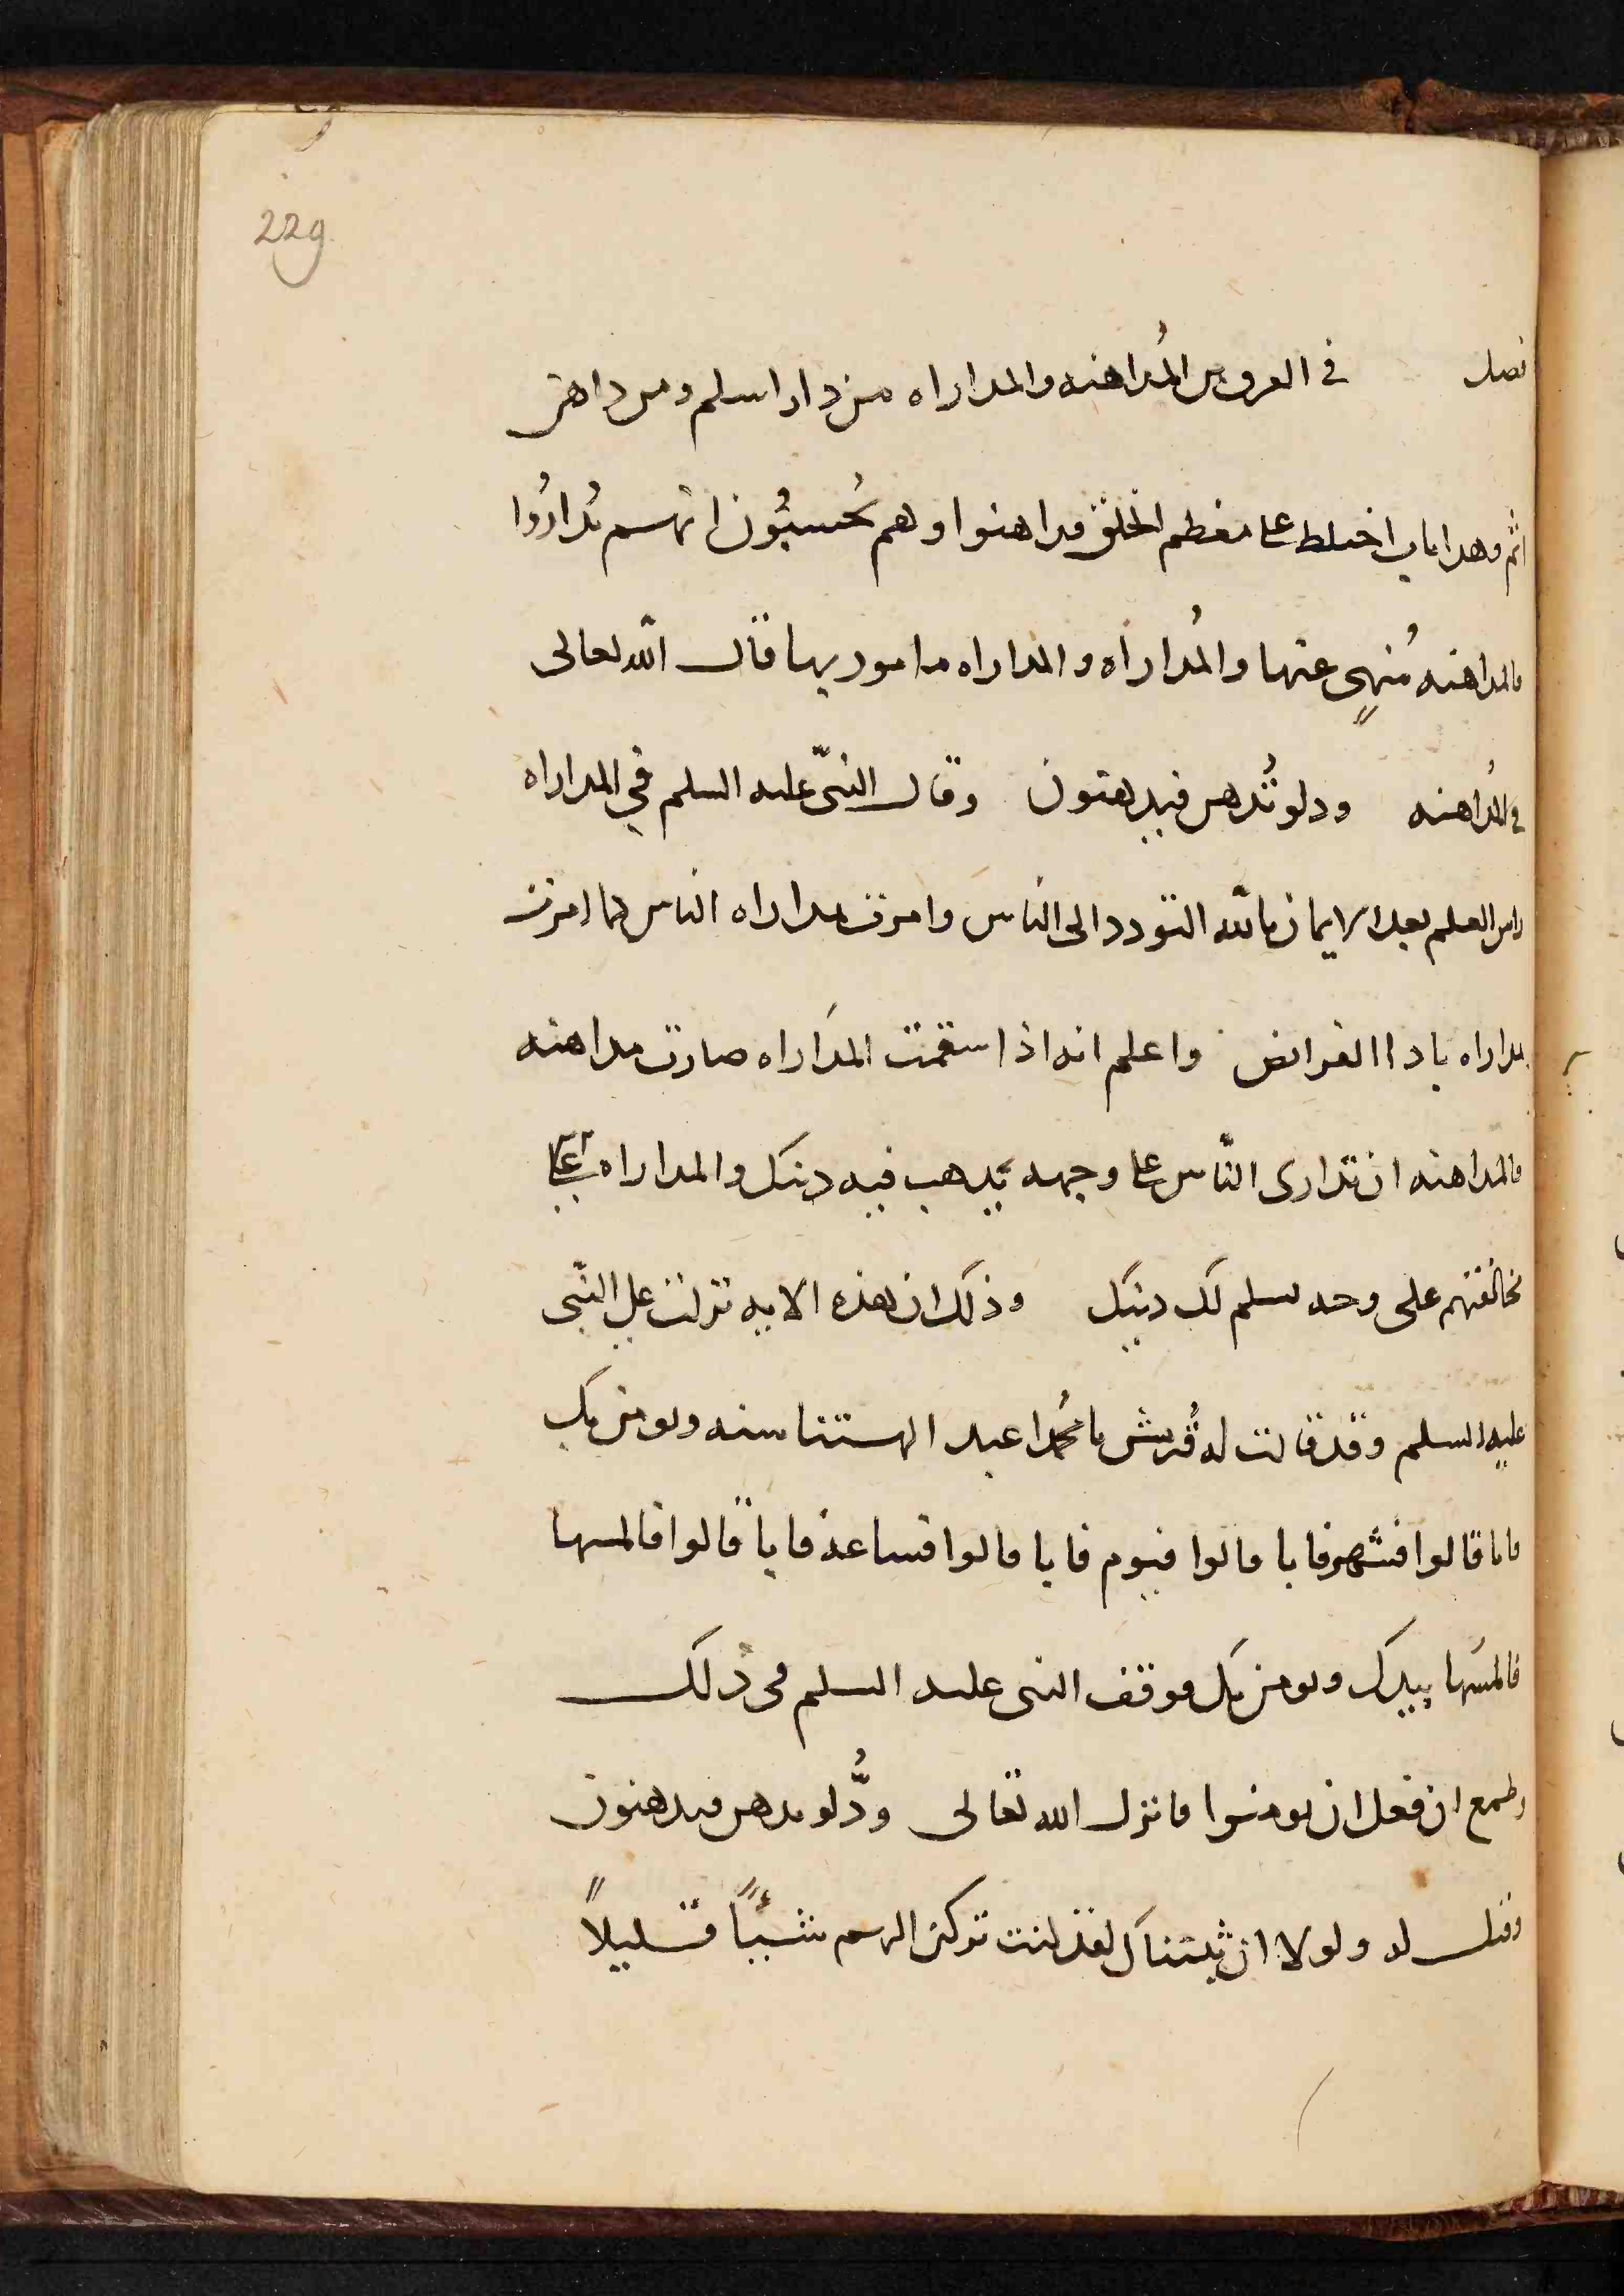 229
فصل في الفرق بين المُداهنه والمداراه من دارا سلم ومن داهن
اثم وهذا باب اختلط على معظم الخلق فداهنوا وهم يُحسبُون انهم يُدارُوا
فالمداهنه مُنهىٍ عنها والمُداراه والمداراه مامور بها قال الله تعالى
في المُداهنه ودلو تُدهن فيدهنون وقال النبىّ عليه السلم في المداراه
راس العلم بعد الايمان بالله التودد الى الناس وامرت بمداراه الناس كما امرت
بمداراه بادا الفرائض واعلم انه اذا سقمت المداراه صارت مداهنه
فالمداهنه ان تدارى النّاس على وجهه يذهب فيه دينك والمداراه
مخالفتهم على وجه يسلم لك دينك وذلك ان هذه الايه نزلت على النّبى
عليه السلم وقد قالت له قُريش يا محُمد اعبد الهتنا سنه ونومن بك
فابا قالوا فشهر فابا قالوا فيوم فابا قالوا فساعه فابا قالوا فالمسها
فالمسَها بيدك ونومن بك فوقف النبى عليه السلم فى ذلك
وطمع ان فعل ان يومنوا فانزل الله تعالى ودُّ لو تدهن فيدهنون
وقيل له ولولا ان ثبتناك لقد كنت تركن اليهم شيئًا قليلاً